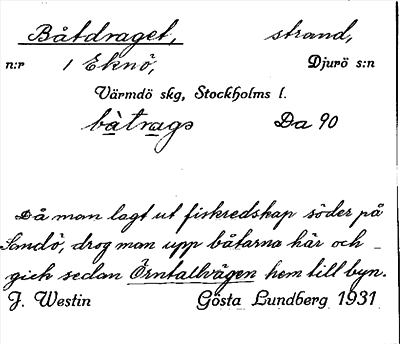 Båtdraget, strand,
n:r 1 Eknö, Djurö s:n
Värmdö skg, Stockholms l.
bàtrags Da 90
Då man lagt ut fiskredskap söder på
Sandö, drog man upp båtarna här och
gick sedan Örntallvägen hem till byn.
J. Westin Gösta Lundberg 1931